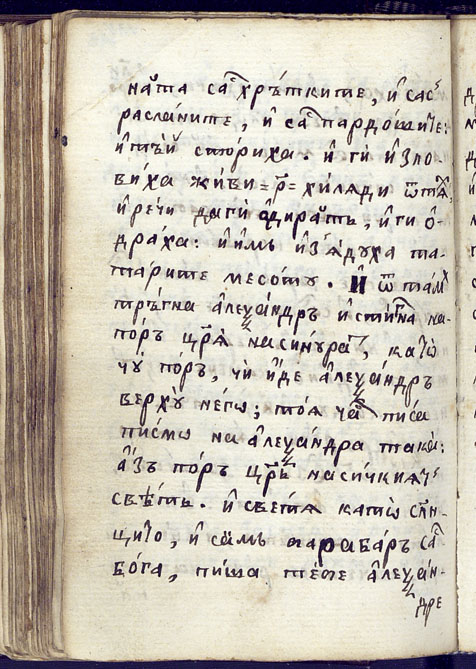 наꙋ҆та са҆ хрѣ́тките, и҆ сас
расла́ните, и҆ са҆ пардо́ѡите:
и҆ тѣй сто́риха. и҆ ги҆ и҆зло-
ви́ха жи́ви =р҃= хи́лѧди ѿ тѧ,
и҆ ре́чи да ги ѻ҆дира́ть, и҆ ги ѻ҆-
дра́ха: и҆ и҆мь и҆зѧ́дꙋха та-
та́рите месо́тꙋ. И҆ ѿ тамъ
трѣ́гна а҆леѯа́ндръ и҆ сти́гна на
по́ръ цр҃ѧ̀ на синꙋ́ра, като̀
чꙋ̀ по́ръ, чи и҆́де а҆леѯа́ндръ
верхꙋ̀ не́гѡ; то́ѧ ча писа̀
писмо̀ на а҆леѯа́ндра така̀:
а҆́зъ по́ръ цр҃ь на си́чкиѧт
свѣ́ть. и҆ све́тѧ като̀ слн-
цито, и҆ са́мь параба́ръ са҆
бо́га, пи́ша те́бе а҆леѯа́н-
дре